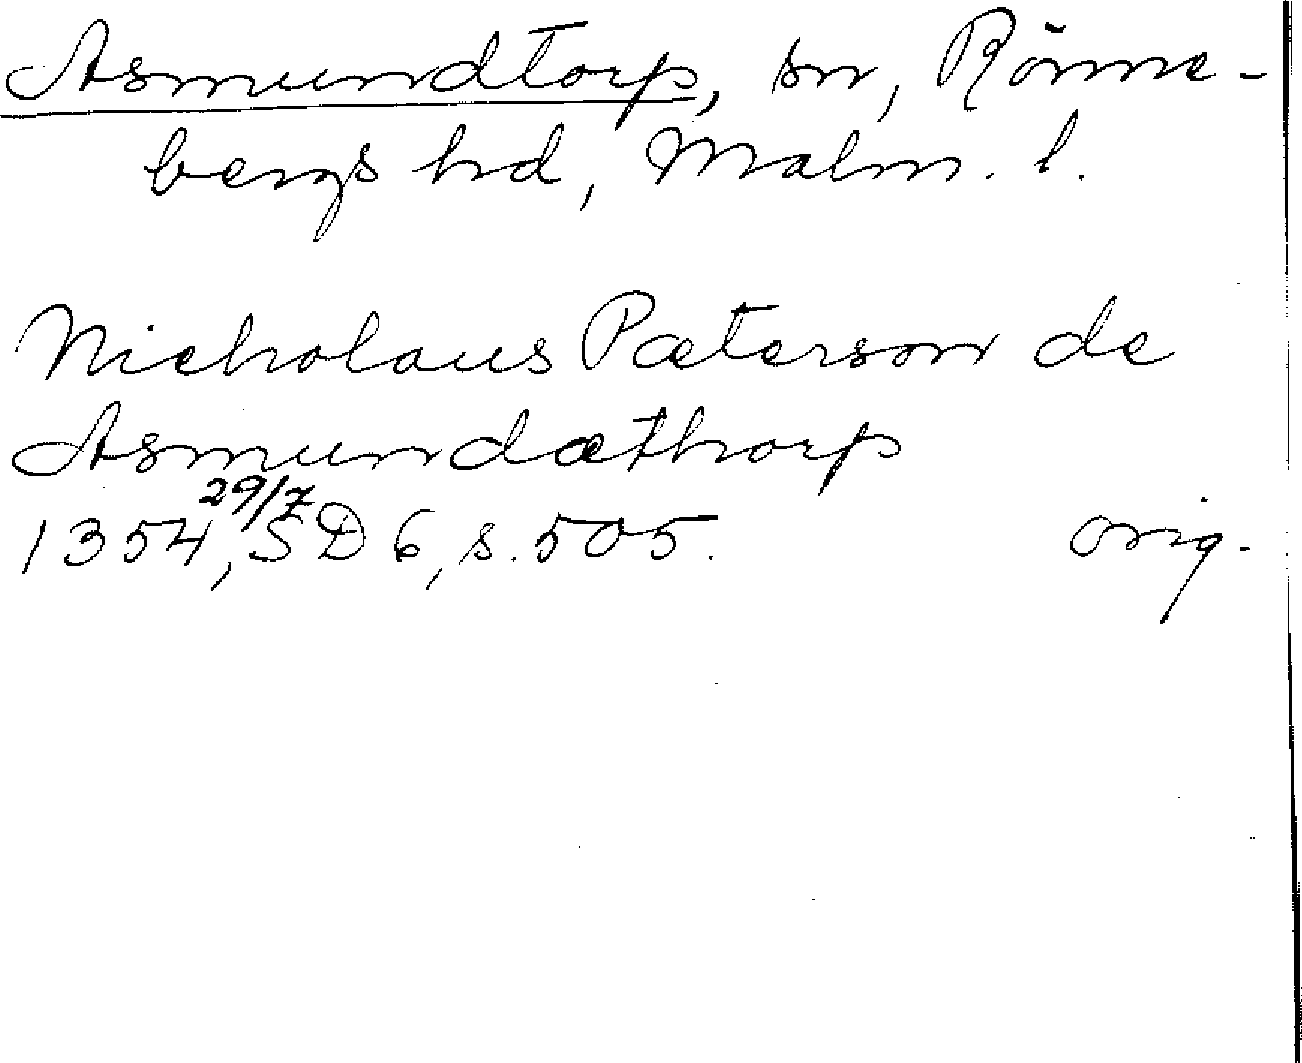 Asmundtorp, sn, Rönne-
bergs hd, Malm. l.
Nicholaus Pæterson de
Asmundæthorp
1354 29/7, SD 6, s. 505. orig.